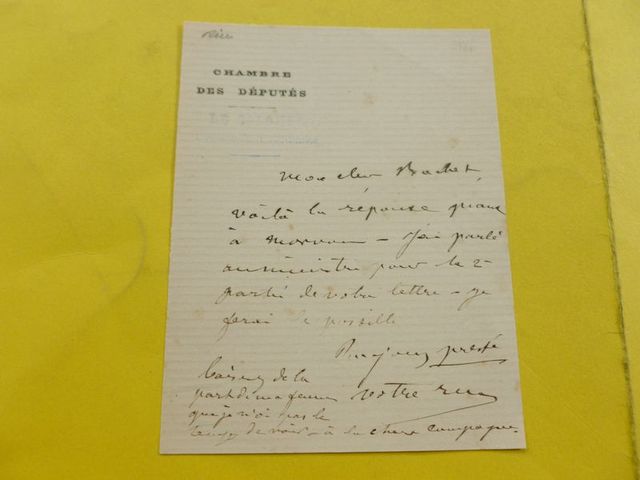 CHAMBRE
DES DÉPUTÉS
Mon cher Bachet,
voilà la réponse quant
à – j'ai parlé
au ministre pour la 2e
partie de votre lettre – je
ferai le possible
Toujours pressé
votre
de la
part de ma femme
que je n'ai pas le
temps de voir – à la chère compagne.